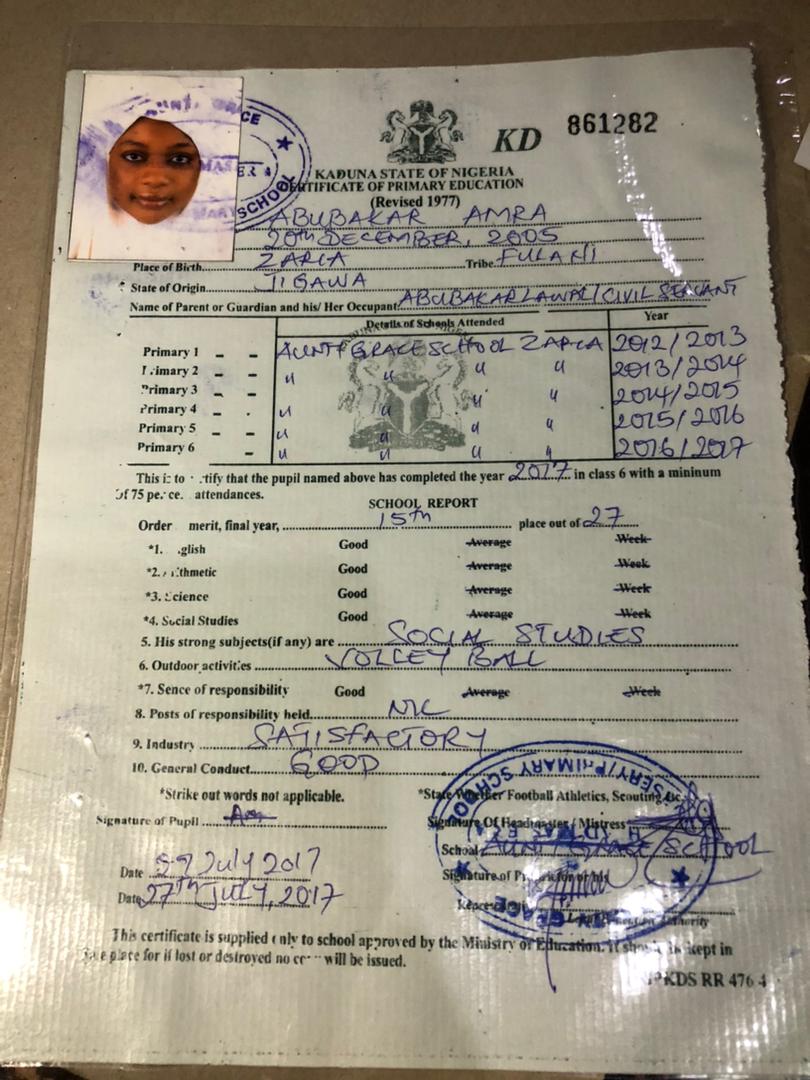 KD 861282
KADUNA STATE OF NIGERIA
CERTIFICATE OF PRIMARY EDUCATION
(Revised 1977)
ABUBAKAR AMRA
20th DECEMBER, 2005
Place of Birth ZARIA Tribe FULANI
State of Origin JIGAWA
Name of Parent or Guardian and his/ Her Occupant ABUBAKAR LAWAL / CIVIL SERVANT
Details of Schools Attended Year
Primary 1 - - AUNTY GRACE SCHOOL ZARIA 2012/2013
Primary 2 - - " " " " 2013/2014
Primary 3 - - " " 2014/2015
Primary 4 - - " " 2015/2016
Primary 5 - - " " " 2016/2017
Primary 6 - " " " "
This is to certify that the pupil named above has completed the year 2017 in class 6 with a minimum
of 75 per ce. attendances.
SCHOOL REPORT
Order merit, final year, 15th place out of 27
*1. glish Good Average Week
*2. thmetic Good Average Week
*3. Science Good Average Week
*4. Social Studies Good Average Week
5. His strong subjects(if any) are SOCIAL STUDIES
6. Outdoor activities VOLLEY BALL
*7. Sence of responsibility Good Average Week
8. Posts of responsibility held NIL
9. Industry SATISFACTORY
10. General Conduct GOOD
*Strike out words not applicable. *State Whether Football Athletics, Scouting &c.
Signature of Pupil Signature Of Headmaster / Mistress
School AUNTY GRACE SCHOOL
Date July 2017 Signature of
Date 27TH JULY, 2017
Authority
This certificate is supplied only to school approved by the Ministry of Education. kept in
place for if lost or destroyed no will be issued.
PKDS RR 476 4